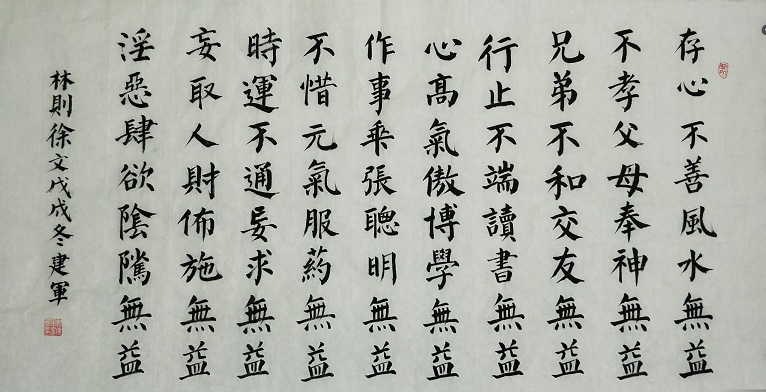 存心不善風水無益
不孝父母奉神無益
兄弟不和交友無益
行止不端讀書無益
心高氣傲博學無益
作事乖張聰明無益
不惜元氣服药無益
時運不通妄求無益
妄取人財佈施無益
淫惡肆欲陰騭無益
林則徐文戊戌冬建軍